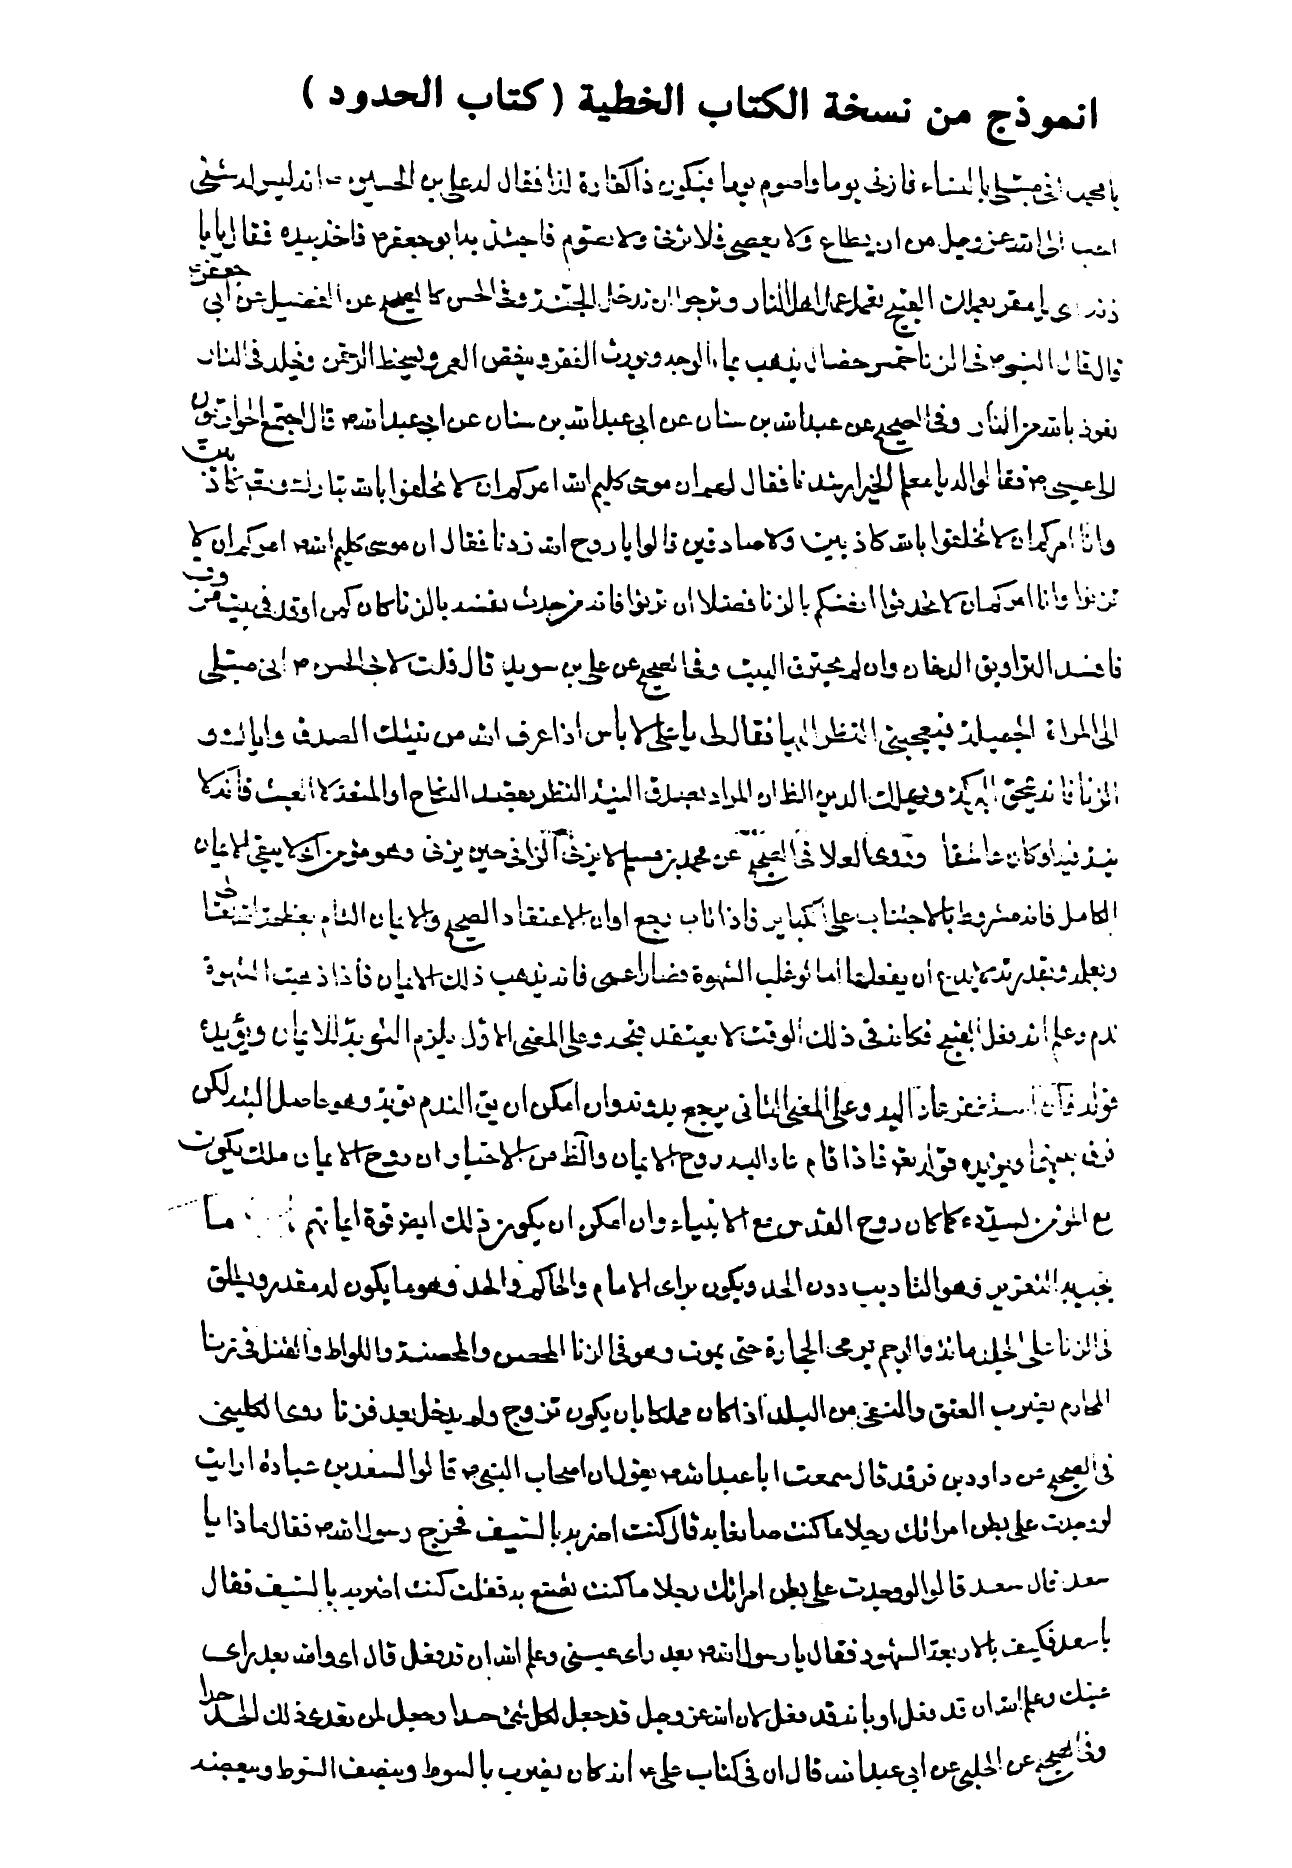 انموذج من نسخة الكتاب الخطية ( كتاب الحدود )
يا محمد انى مبتلى بالنساء فازنى يوما واصوم يوما فيكون ذا كفارة لذا فقال له على بن الحسين انه ليس لله شئى
احب الى الله عز وجل من ان يطاع ولا يعصى فلا تزن ولا تصوم فاجتذبه ابو جعفر فاخذ بيده فقال يا با
يعمل عمل اهل النار وترجوا ان تدخل الجنة وفى الحسن كالصحيح عن الفضيل عن أبى جعفر
قال قال النبى فى الزنا خمس خصال يذهب بماء الوجه ويورث الفقر وينقص العمر ويسخط الرحمن ويخلد فى النار
نعوذ بالله من النار وفى الصحيح عن عبد الله بن سنان عن ابى عبد الله بن سنان عن ابى عبد الله قال اجتمع الحواريون
الى عيسى فقالوا له يا معلم الخير ارشدنا فقال لهم ان موسى كليم الله امركم ان لا تحلفوا بالله تبارك وتعالى كاذبين
وانا امركم ان لا تحلفوا بالله كاذبين ولا صادقين قالوا يا روح الله زدنا فقال ان موسى كليم الله امركم ان لا
تزنوا وانا امركم ان لا تحدثوا انفسكم بالزنا فضلا ان تزنوا فانه من حدث نفسه بالزنا كان كمن اوقد فى بيت مزوق
فافسد التزاويق الدخان وان لم يحترق البيت وفى الصحيح عن على بن سويد قال قلت لابى الحسن انى مبتلى
الى المراة الجميلة فيعجبنى النظر اليها فقال لى يا على لا بأس اذا عرف الله من نيتك الصدق واياك و
الزنا فانه يمحق البركة ويهلك الدين الظ ان المراد بصدق النية النظر بقصد النكاح او المتعة لا العبث فأنه لا
عن محمد بن مسلم لا يزنى الزانى حين يزنى وهو مؤمن اى لا يبقى له الايمان
الكامل فانه مشروط بالاجتناب عن الكباير فاذا تاب رجع اوان الاعتقاد الصحيح والايمان التام بعظمة الله تعالى
وبعلمه وبقدرته لا يدع ان يفعلها اما لو غلب الشهوة فصار اعمى فانه يذهب ذلك الايمان فأذا ذهبت الشهوة
ندم وعلم انه فعل القبيح فكانه فى ذلك الوقت لا يعتقد قبحه وعلى المعنى الاول يلزم التوبة للايمان ويؤيده
عاد اليه وعلى المعنى الثانى يرجع بدونه وان امكن ان يق الندم توبة وهو حاصل البتة لكن
فرق بينهما ويؤيده قوله فاذا قام عاد اليه روح الايمان والظ من الاخبار ان روح الايمان ملك يكون
مع المؤمن ليسدده كما كان روح القدس مع الانبياء وان امكن ان يكون ذلك ايض قوة ايمانهم ما
يجب به التعزير وهو التاديب دون الحد ويكون براى الامام والحاكم والحد وهو ما يكون له مقدر ويطلق
فى الزنا على الجلد مائة والرجم يرمى الحجارة حتى يموت وهو فى الزنا المحصن والمحصنة واللواط والقتل فى زنا
المحارم بضرب العنق والنفى من البلد اذا كان مملكا بان يكون تزوج ولم يدخل بعد فزنا روى الكلينى
فى الصحيح عن داود بن فرقد قال سمعت ابا عبد الله يقول ان اصحاب النبى قالوا لسعد بن عبادة ارايت
لو وجدت على بطن امراتك رجلا ما كنت صانعا به قال كنت اضربه بالسيف فخرج رسول الله فقال ماذا يا
سعد قال سعد قالوا لو وجدت على بطن امراتك رجلا ما كنت تصنع به فقلت كنت اضربه بالسيف فقال
يا سعد فكيف بالاربعة الشهود فقال يا رسول الله بعد راى عينى وعلم الله ان قد فعل قال اى والله بعد راى
عينك وعلم الله ان قد فعل لان الله عز وجل قد جعل لكل شئ حدا وجعل لمن تعدى ذلك الحد حدا
وفى الصحيح عن الحلبى عن ابى عبد الله قال ان فى كتاب على انه كان يضرب بالسوط وبنصف السوط وببعضه